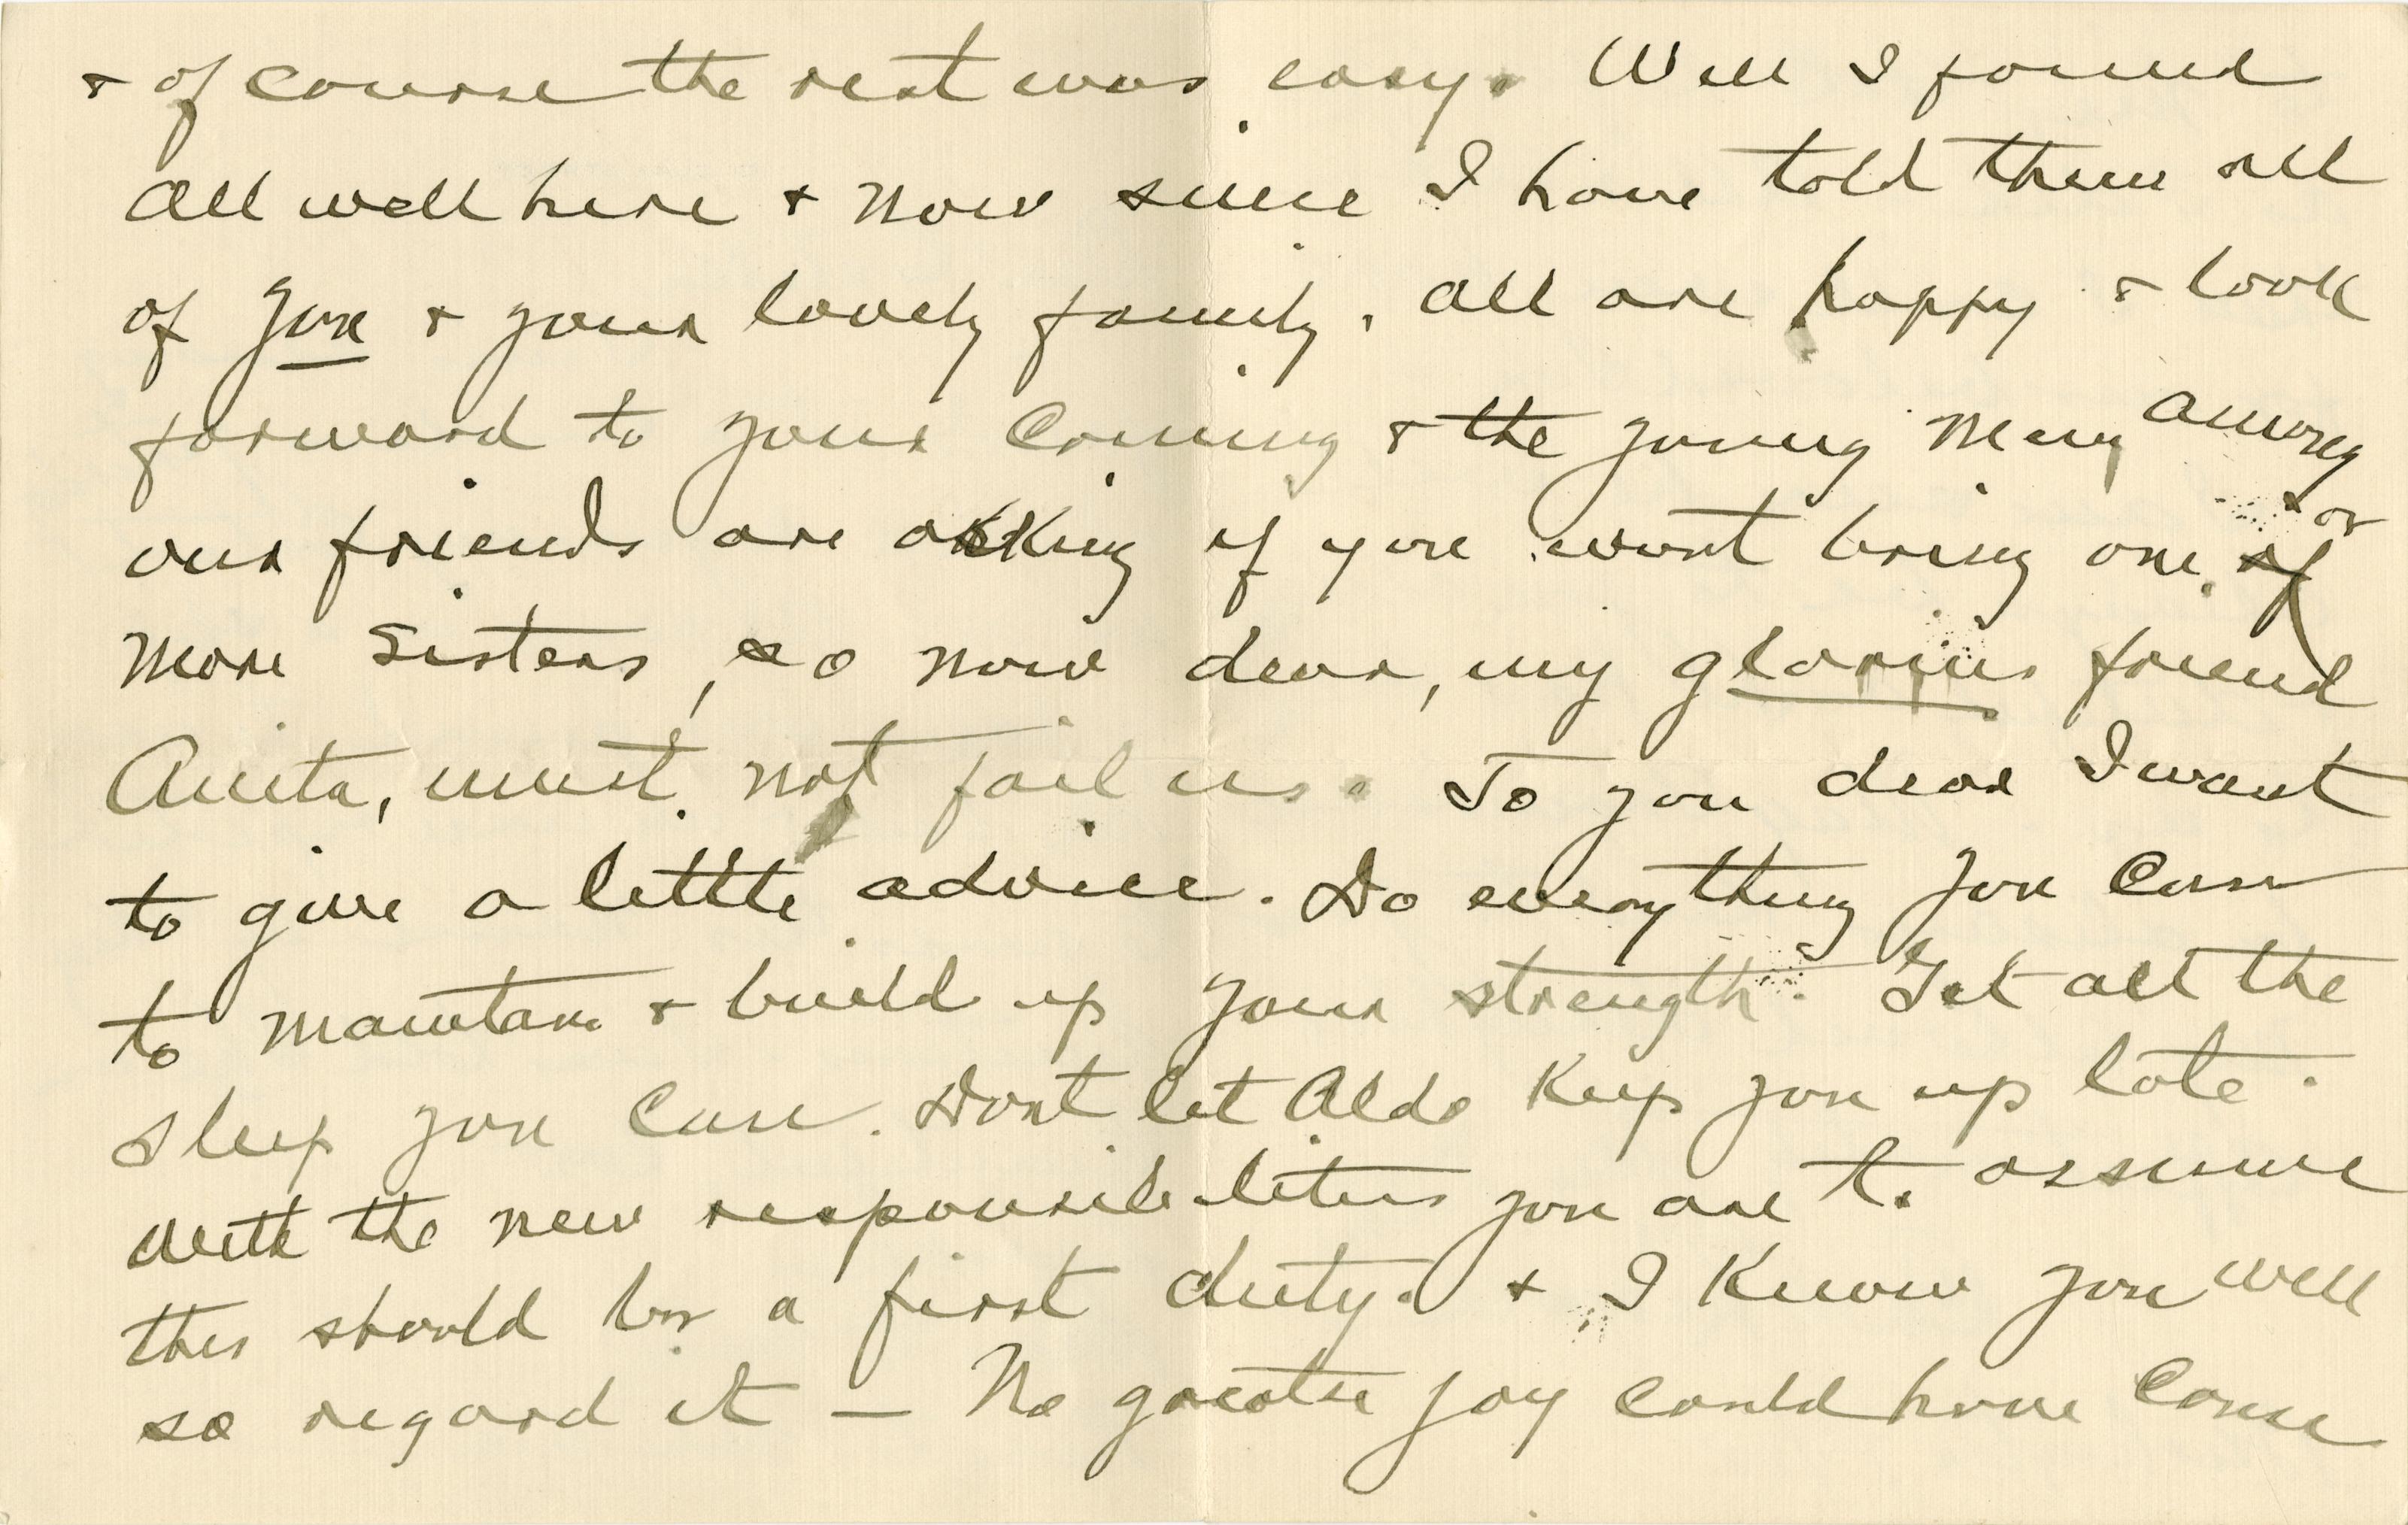 & of course the rest was easy. Well I found
all well here & now since I have told them all
of you & your lovely family. all are happy & look
forward to your coming & the young men among
our friends are asking if you wont bring one or
more sisters, so now dear, my glorius friend
Anita, must not fail us. To you dear I want
to give a little advice. Do everything you can
to maintain & build up your strength. Get all the
sleep you can. Dont let Aldo keep you up late.
With the new responsibilities you are to assume
this should be a first duty. & I know you will
so regard it — No greater joy could have come